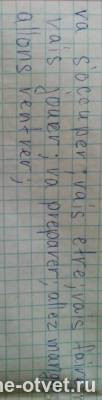 va s'occuper; vais etre; vais faire;
vais jouer; va preparer; alez mang
allons rentrer;
ne-otvet.ru